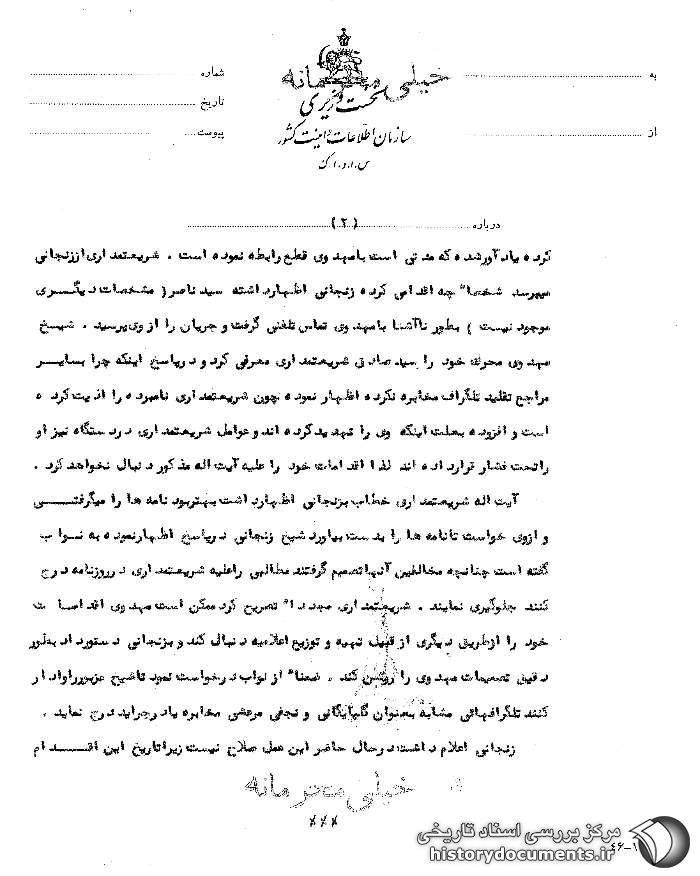 خیلی محرمانه
به
شماره
نخست وزیری
تاریخ
سازمان اطلاعات و امنیت کشور
از
پیوست
س.ا.و.ا.ک
درباره (۲)
کرده یادآورشده که مدتی است بامهدوی قطع رابطه نموده است . شریعتمداری اززنجانی
میپرسد شخصا" چه اقدامی کرده زنجانی اظهارداشته سید ناصر ( مشخصات دیگری
موجود نیست ) بطور ناآشنا بامهدوی تماس تلفنی گرفت و جریان را از وی پرسید . شیخ
مهدوی محرک خود را سید صادق شریعتمداری معرفی کرد و درپاسخ اینکه چرا بسایر
مراجع تقلید تلگراف مخابره نکرده اظهار نموده چون شریعتمداری نامبرده را اذیت کرده
است و افزوده بعلت اینکه وی را تهدید کرده اند و عوامل شریعتمداری در دستگاه نیز او
راتحت فشار قرارداده اند لذا اقدامات خود را علیه آیت اله مذکور دنبال نخواهد کرد .
آیت اله شریعتمداری خطاب بزنجانی اظهارداشت بهتربود نامه ها را میگرفتی
و ازوی خواست تانامه ها را بدست بیاورد شیخ زنجانی درپاسخ اظهارنموده به نواب
گفته است چنانچه مخالفین آنهاتصمیم گرفتند مطالبی راعلیه شریعتمداری درروزنامه درج
کنند جلوگیری نمایند . شریعتمداری مجددا" تصریح کرد ممکن است مهدوی اقدامات
خود را ازطریق دیگری از قبیل تهیه و توزیع اعلامیه دنبال کند و بزنجانی دستورداد بطور
دقیق تصمیمات مهدوی را روشن کند . ضمنا" از نواب درخواست نمود تاشیخ مزبورراوادار
کنند تلگرافهائی مشابه بعنوان گلپایگانی و نجفی مرعشی مخابره یادرجراید درج نماید .
زنجانی اعلام داشت درحال حاضر این عمل صلاح نیست زیراتاریخ این اقدام
خیلی محرمانه
مرکز بررسی اسناد تاریخی
historydocuments.ir